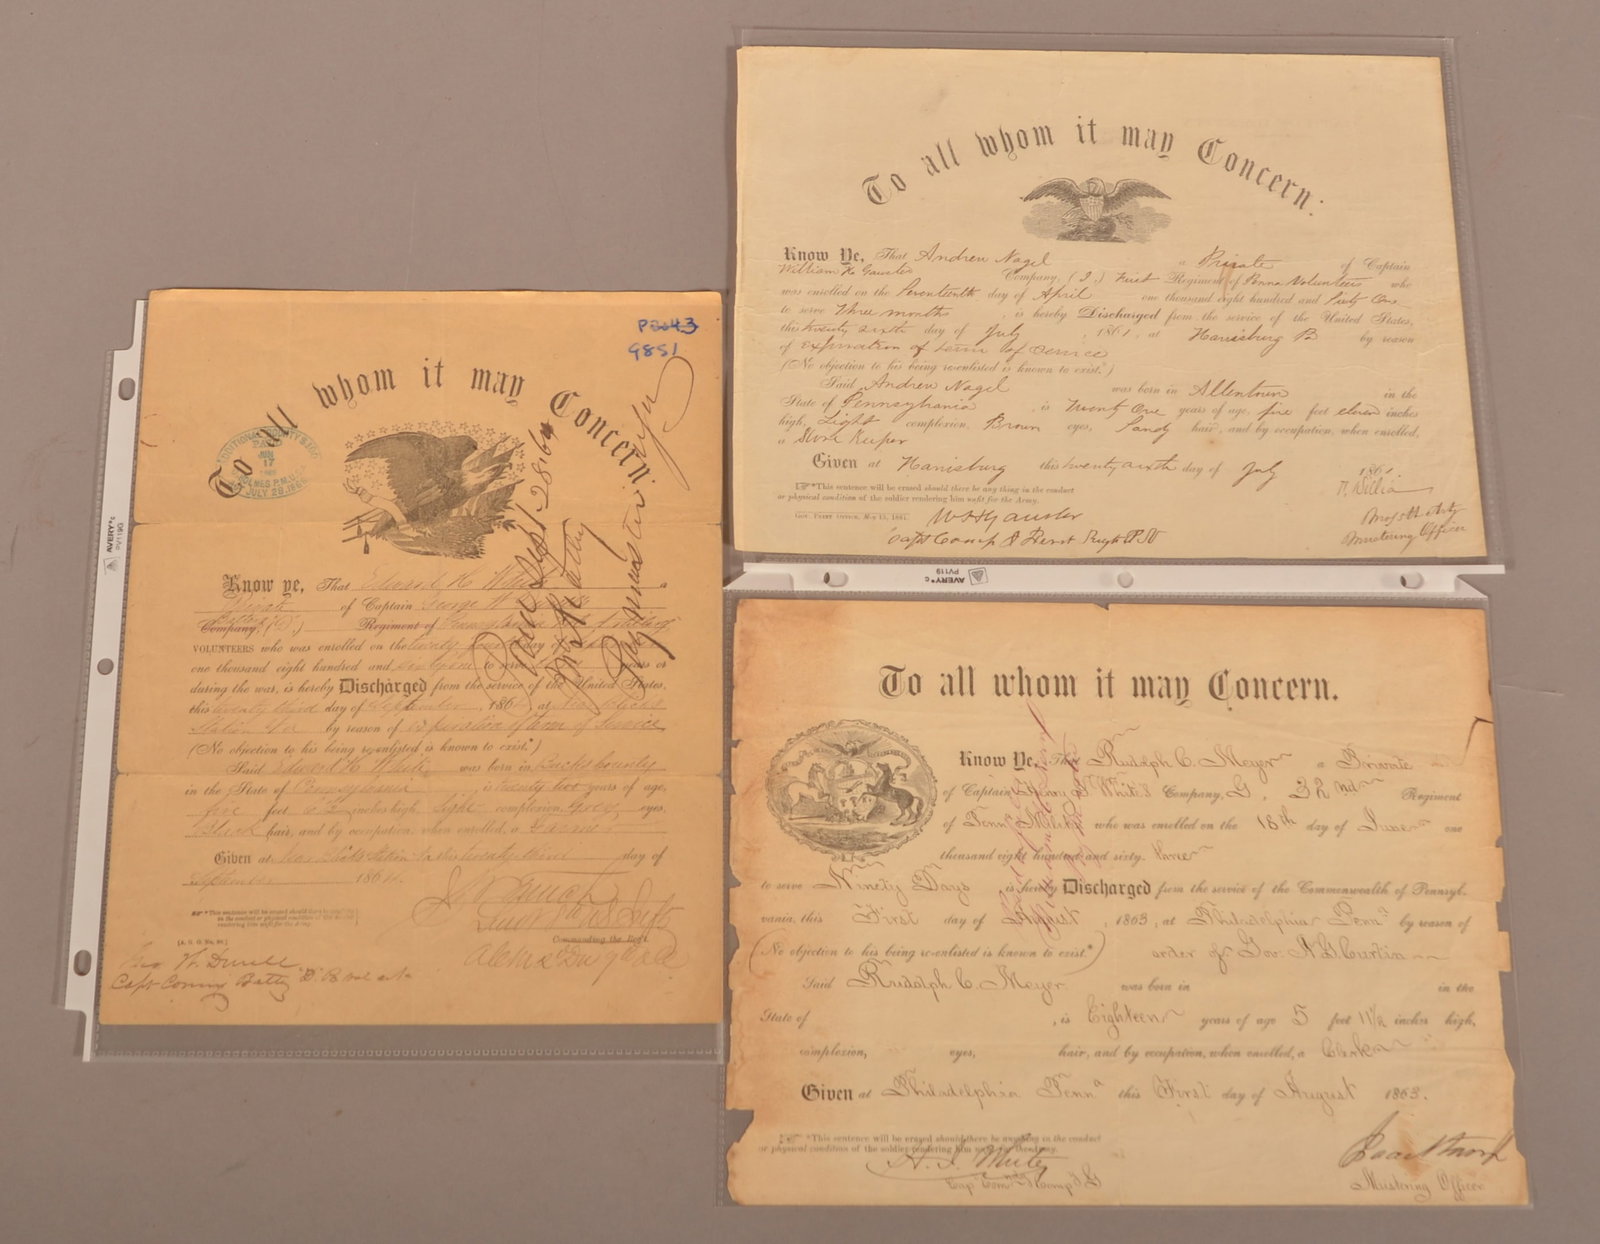 PB643
9851
To all whom it may Concern:
ADDITIONAL BOUNTY $100
PAID
JUN
17
HOLMES P.M. U.S.A.
JULY 28, 1866
Paid Sept 28 1864
Paymaster
Know ye, That Edward H. White a
Private of Captain George W.
Company, (D.) Regiment of Pennsylvania
VOLUNTEERS who was enrolled on the twenty day of
one thousand eight hundred and sixty one to serve years or
during the war, is hereby Discharged from the service of the United States,
this twenty third day of September, 1864, at
Station Va by reason of expiration of term of Service
(No objection to his being re-enlisted is known to exist.*)
Said Edward H. White was born in Bucks County
in the State of Pennsylvania is twenty two years of age,
five feet inches high, Light complexion, Grey eyes,
Black hair, and by occupation, when enrolled, a Farmer
Given at Station Va this twenty third day of
September 1864.
*This sentence will be erased should there be anything in the conduct or physical condition of the soldier rendering him unfit for the Army.
[A. G. O. No. 99.]
Commanding the Reg't.
W. Durell
Capt Comm'g Batty "D"
AVERY
PV119G
To all whom it may Concern:
Know Ye, That Andrew Nagel a Private of Captain
William H. Gausler Company, (I,) First Regiment of Penna Volunteers who
was enrolled on the Seventeenth day of April one thousand eight hundred and Sixty One
to serve Three months, is hereby Discharged from the service of the United States,
this twenty sixth day of July, 1861, at Harrisburg Pa by reason
of Expiration of term of service
(No objection to his being re-enlisted is known to exist.*)
Said Andrew Nagel was born in Allentown in the
State of Pennsylvania, is Twenty One years of age, five feet eleven inches
high, Light complexion, Brown eyes, Sandy hair, and by occupation, when enrolled,
a Store Keeper
Given at Harrisburg this twenty sixth day of July 1861.
*This sentence will be erased should there be any thing in the conduct
or physical condition of the soldier rendering him unfit for the Army.
Gov. Print. Office, May 15, 1861.
W H Gausler
Capt Comp I First Regt P V
Mustering Officer
AVERY
PV119
To all whom it may Concern.
Know Ye, That Rudolph C. Meyer a Private
of Captain Henry S. White's Company, G, 32nd Regiment
of Penna Militia who was enrolled on the 18th day of June one
thousand eight hundred and sixty three
to serve Ninety Days is hereby Discharged from the service of the Commonwealth of Pennsyl-
vania, this First day of August, 1863, at Philadelphia Penna by reason of
(No objection to his being re-enlisted is known to exist.*) order of Gov. A G Curtin
Said Rudolph C. Meyer was born in in the
State of , is Eighteen years of age 5 feet 11 1/2 inches high,
complexion, eyes, hair, and by occupation, when enrolled, a Clerk
Given at Philadelphia Penna this First day of August 1863.
*This sentence will be erased should there be anything in the conduct
or physical condition of the soldier rendering him unfit for the Army.
Mustering Officer